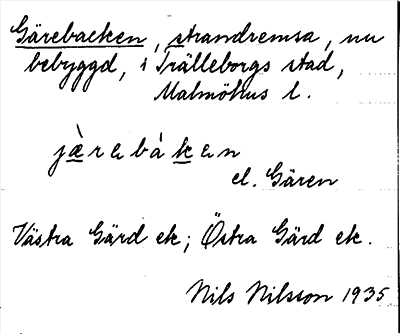 Gärebacken, strandremsa, nu
bebyggd, i Trälleborgs stad,
Malmöhus l.
jæ̀rebáken
el. Gären
Västra Gärd ek; Östra Gärd ek.
Nils Nilsson 1935